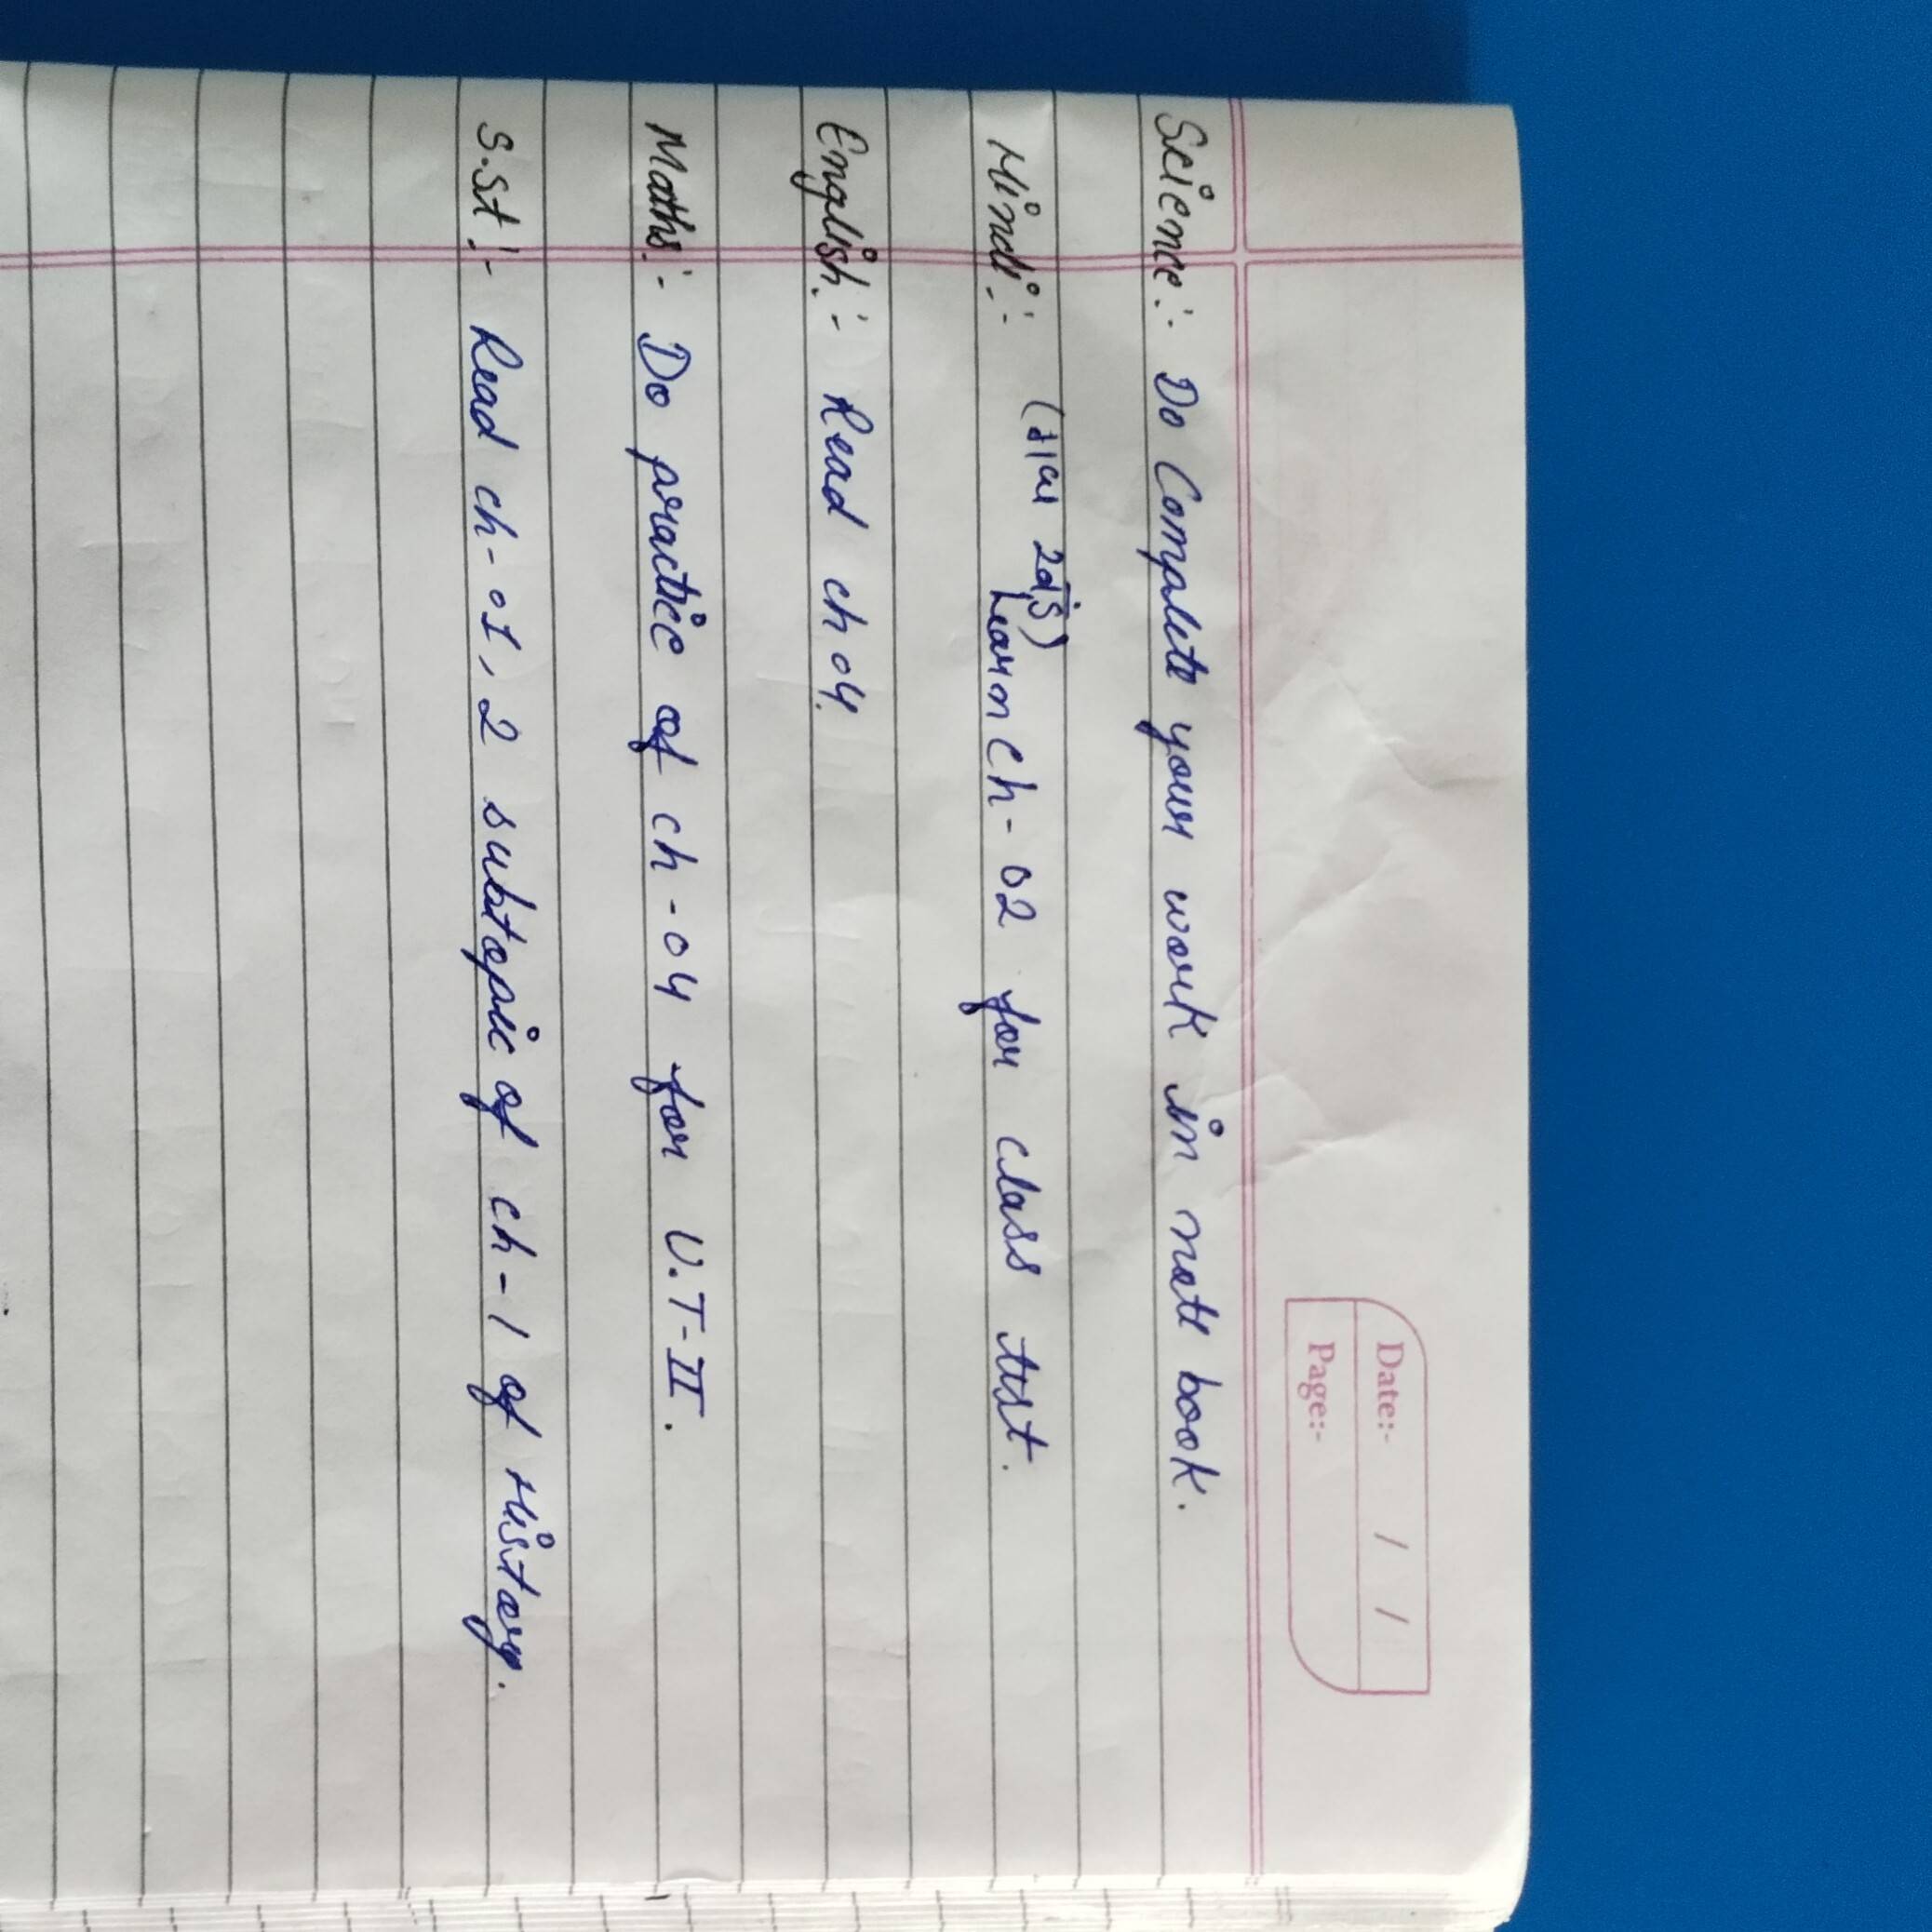 Date:- / /
Page:-
Science:- Do Complete your work in note book.
Hindi:- (गाय 2र्ड) Learn Ch-02 for class test.
English:- Read ch 04.
Maths:- Do practice of ch-04 for U.T-II.
S.St:- Read ch-01, 2 subtopic of ch-1 of History.